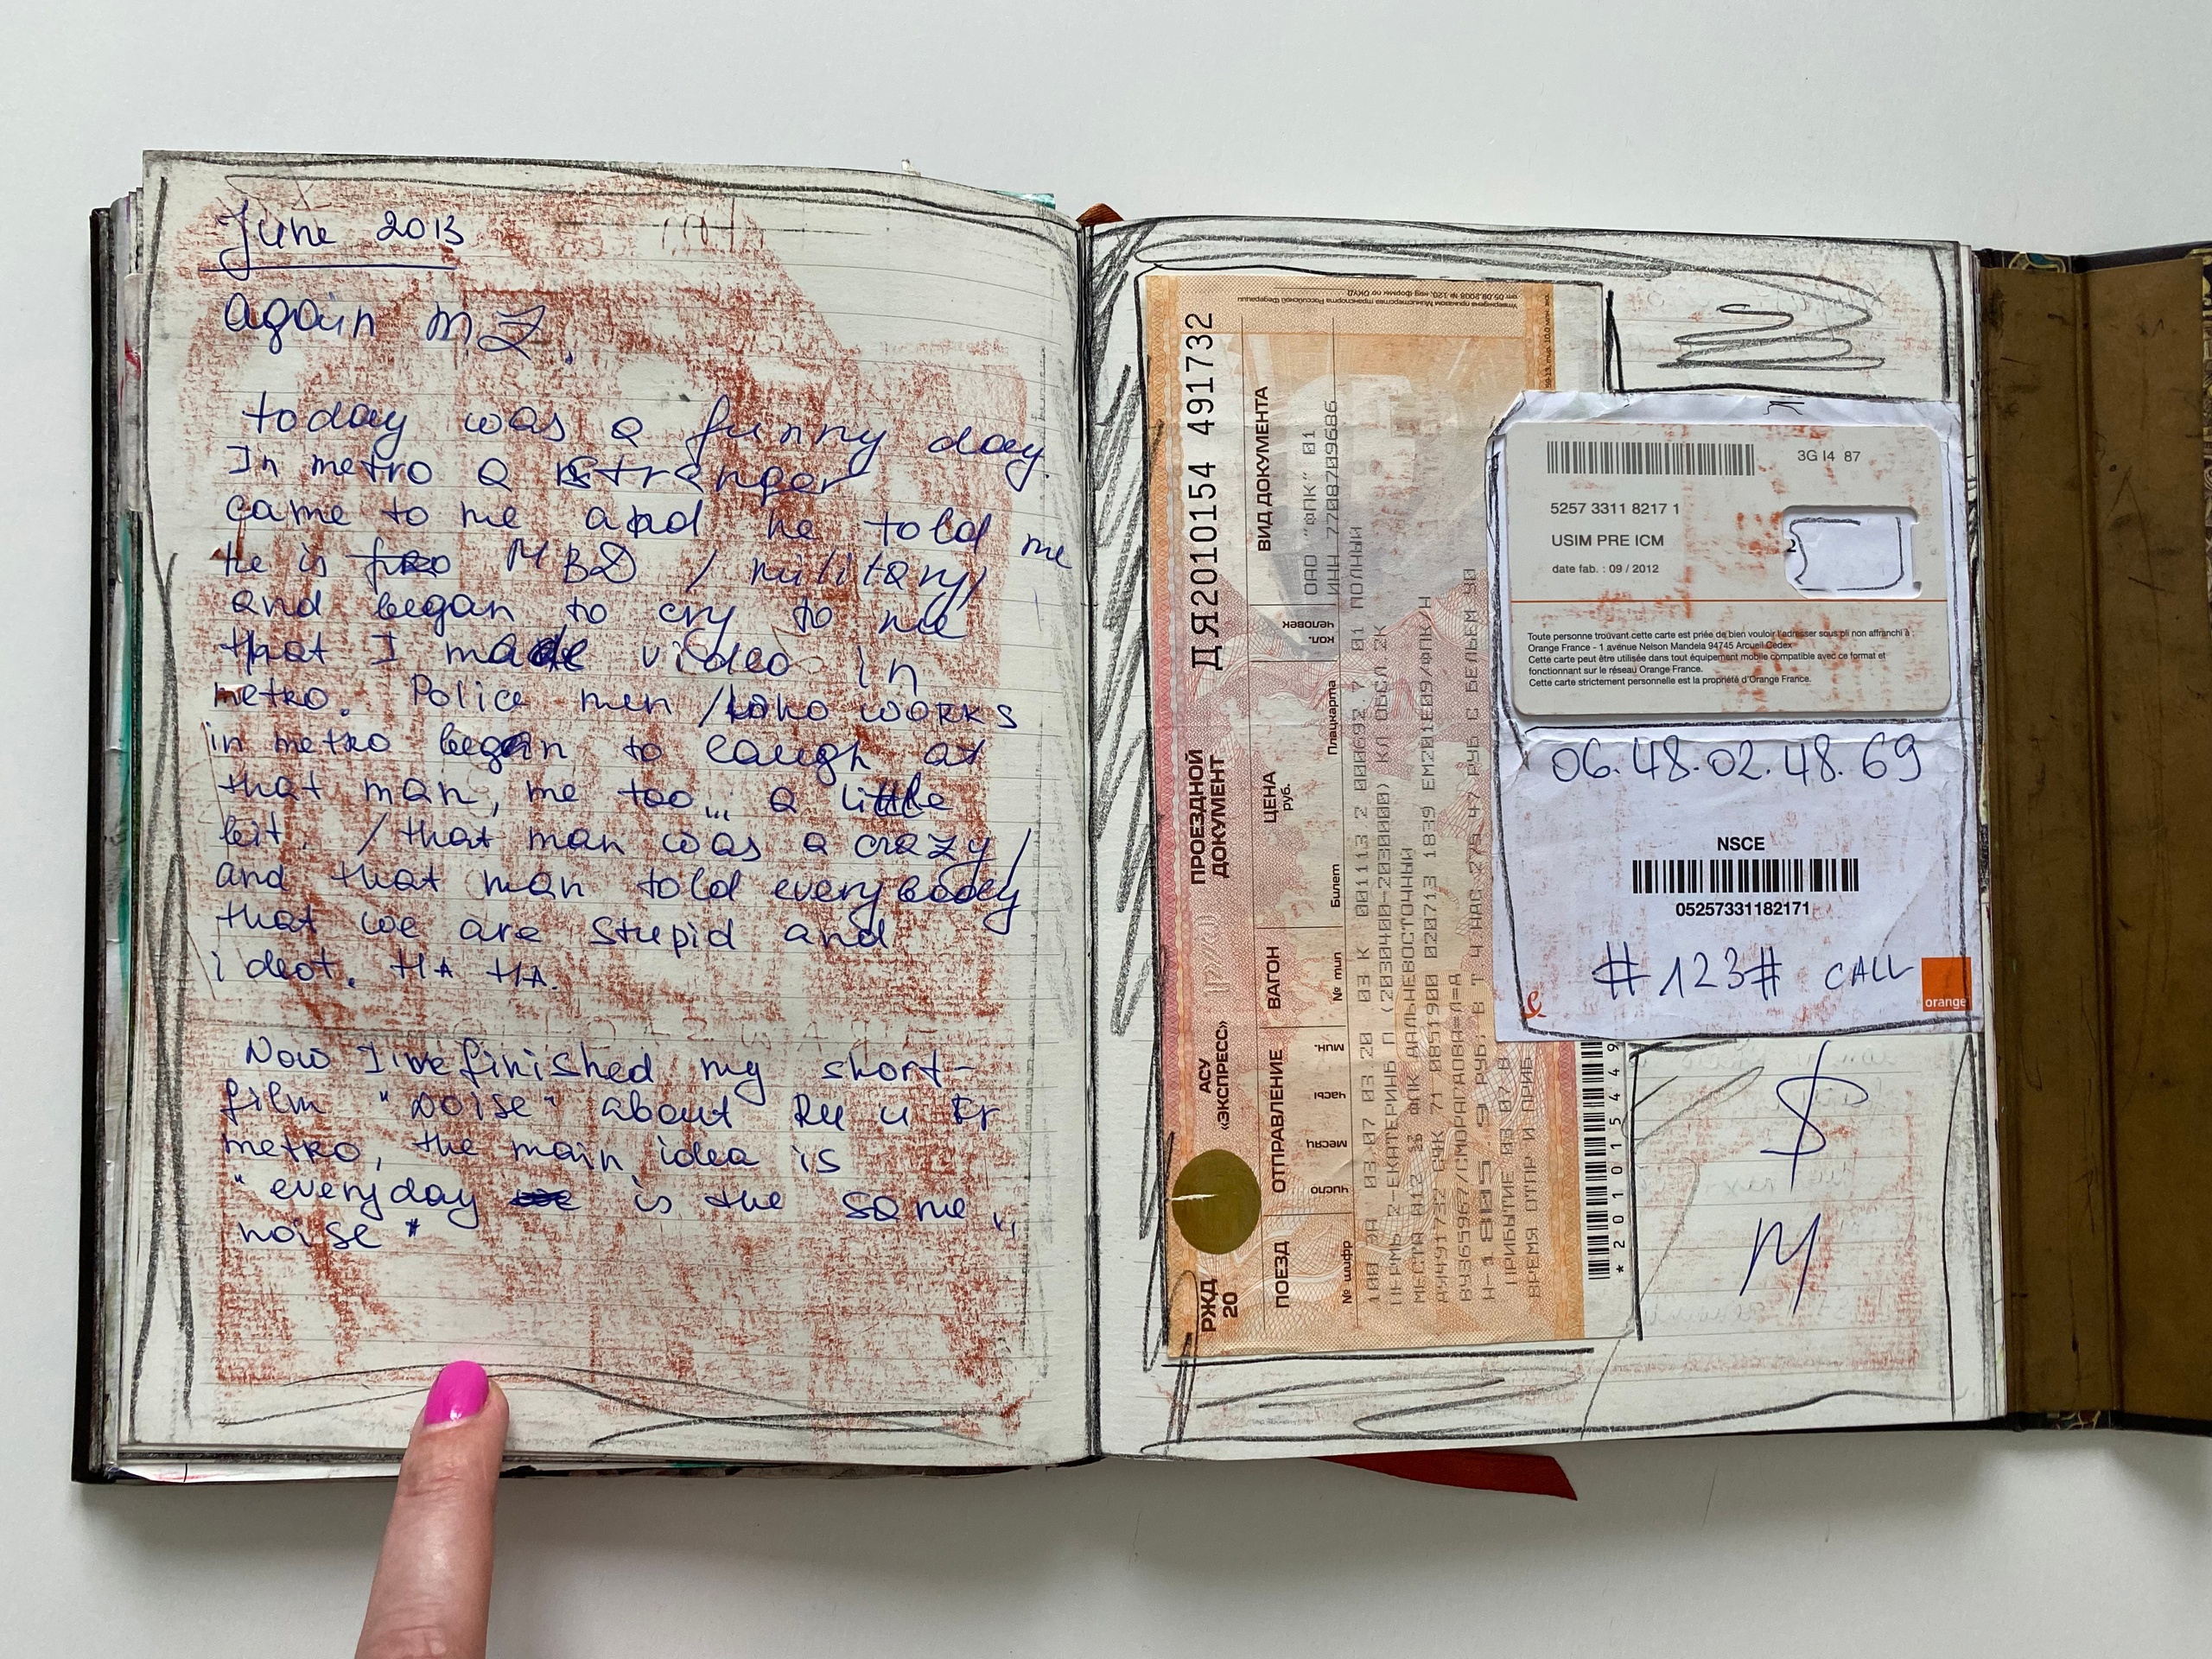 June 2013
again M.Z.
today was a funny day.
In metro a stranger
came to me and he told me
he is MBD / military/
and began to cry to me
that I made video in
metro. Police men /who works
in metro began to laugh at
that man, me too... a little
bit. / that man was a crazy/
and that man told everybody
that we are stupid and
ideot. HA HA.
Now I've finished my short-
film "noise" about Ru u Fr
metro, the main idea is
"everyday is the same
noise"
РЖД
20
АСУ
«ЭКСПРЕСС»
ПРОЕЗДНОЙ
ДОКУМЕНТ
ДЯ2010154 491732
ПОЕЗД
№ шифр
ОТПРАВЛЕНИЕ
число месяц часы мин.
ВАГОН
№ тип
ЦЕНА
руб.
Билет Плацкарта
кол.
человек
ВИД ДОКУМЕНТА
100 ЭА 03.07 03.20 03 К 001113.2 000692.7 01 ПОЛНЫЙ
ПЕРМЬ 2-ЕКАТЕРИНБ П (2030400-2030000) КЛ.ОБСЛ.2К
МЕСТА 012 ФПК ДАЛЬНЕВОСТОЧНЫЙ
ОАО "ФПК" 01
ИНН 7708709686
Н-1805.9 РУБ. В Т.Ч.
РУБ С БЕЛЬЕМ
ПРИБЫТИЕ 03.07 В
ВРЕМЯ ОТПР И ПРИБ
3G I4 87
5257 3311 8217 1
USIM PRE ICM
date fab. : 09 / 2012
2
Toute personne trouvant cette carte est priée de bien vouloir l'adresser sous pli non affranchi à :
Orange France - 1 avenue Nelson Mandela 94745 Arcueil Cedex
Cette carte peut être utilisée dans tout équipement mobile compatible avec ce format et
fonctionnant sur le réseau Orange France.
Cette carte strictement personnelle est la propriété d'Orange France.
06.48.02.48.69
NSCE
05257331182171
#123# CALL
orange
$
M